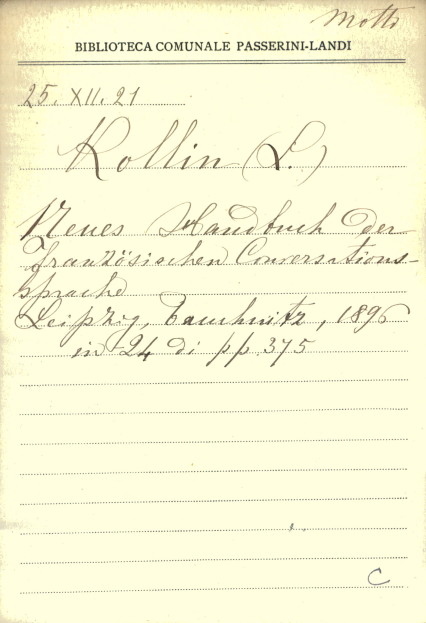 Motti
BIBLIOTECA COMUNALE PASSERINI-LANDI
25. XII. 21
Rollin (L.)
Neues Handbuch der
Französischen Conversations-
sprache
Leipzig, Tauchnitz, 1896
in 24 di pp. 375
C